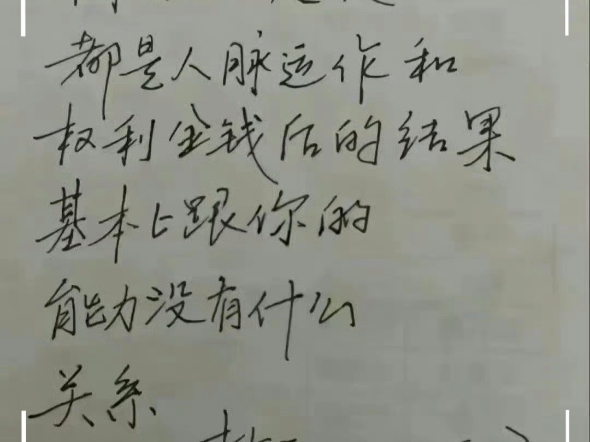 都是人脉运作和
权利金钱后的结果
基本上跟你的
能力没有什么
关系